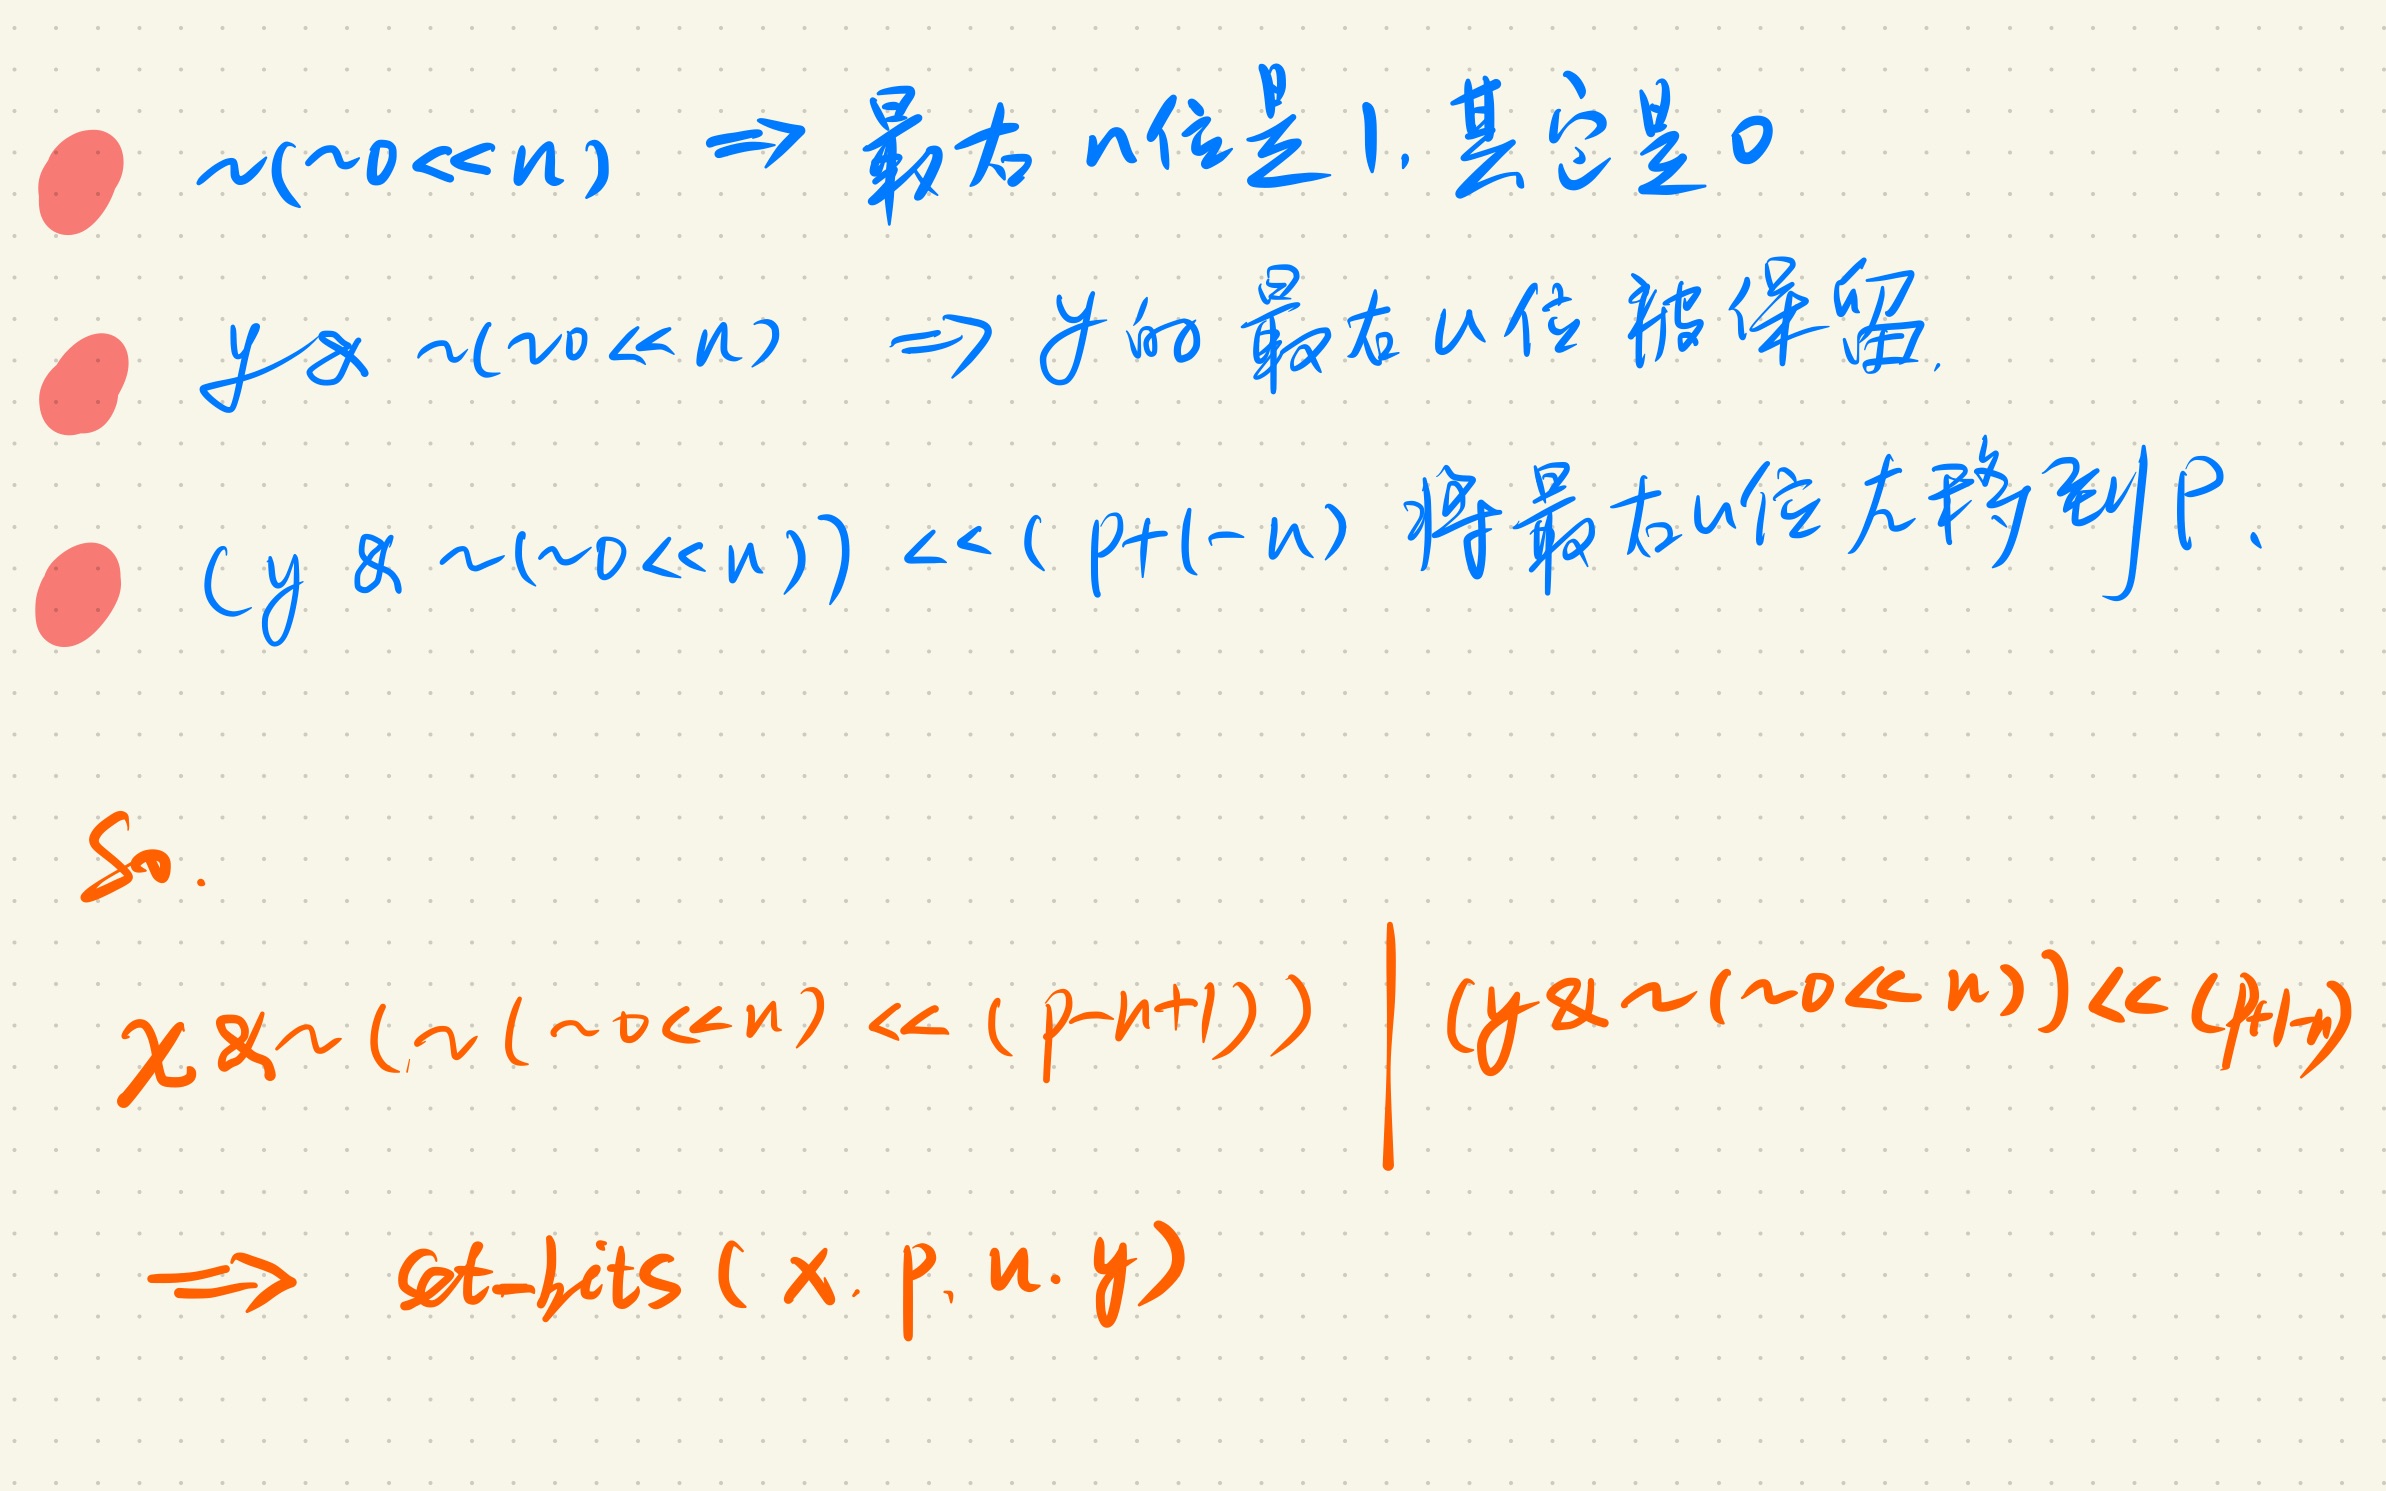 ~(~0<<n) ⇒ 最右n位是1.其它是0
y & ~(~0<<n) ⇒ y的最右n位被保留.
(y & ~(~0<<n)) << (p+1-n) 将最右n位左移到p.
So.
x & ~(~(~0<<n) << (p-n+1)) | (y & ~(~0<<n)) << (p+1-n)
⇒ set-bits(x.p.n.y)